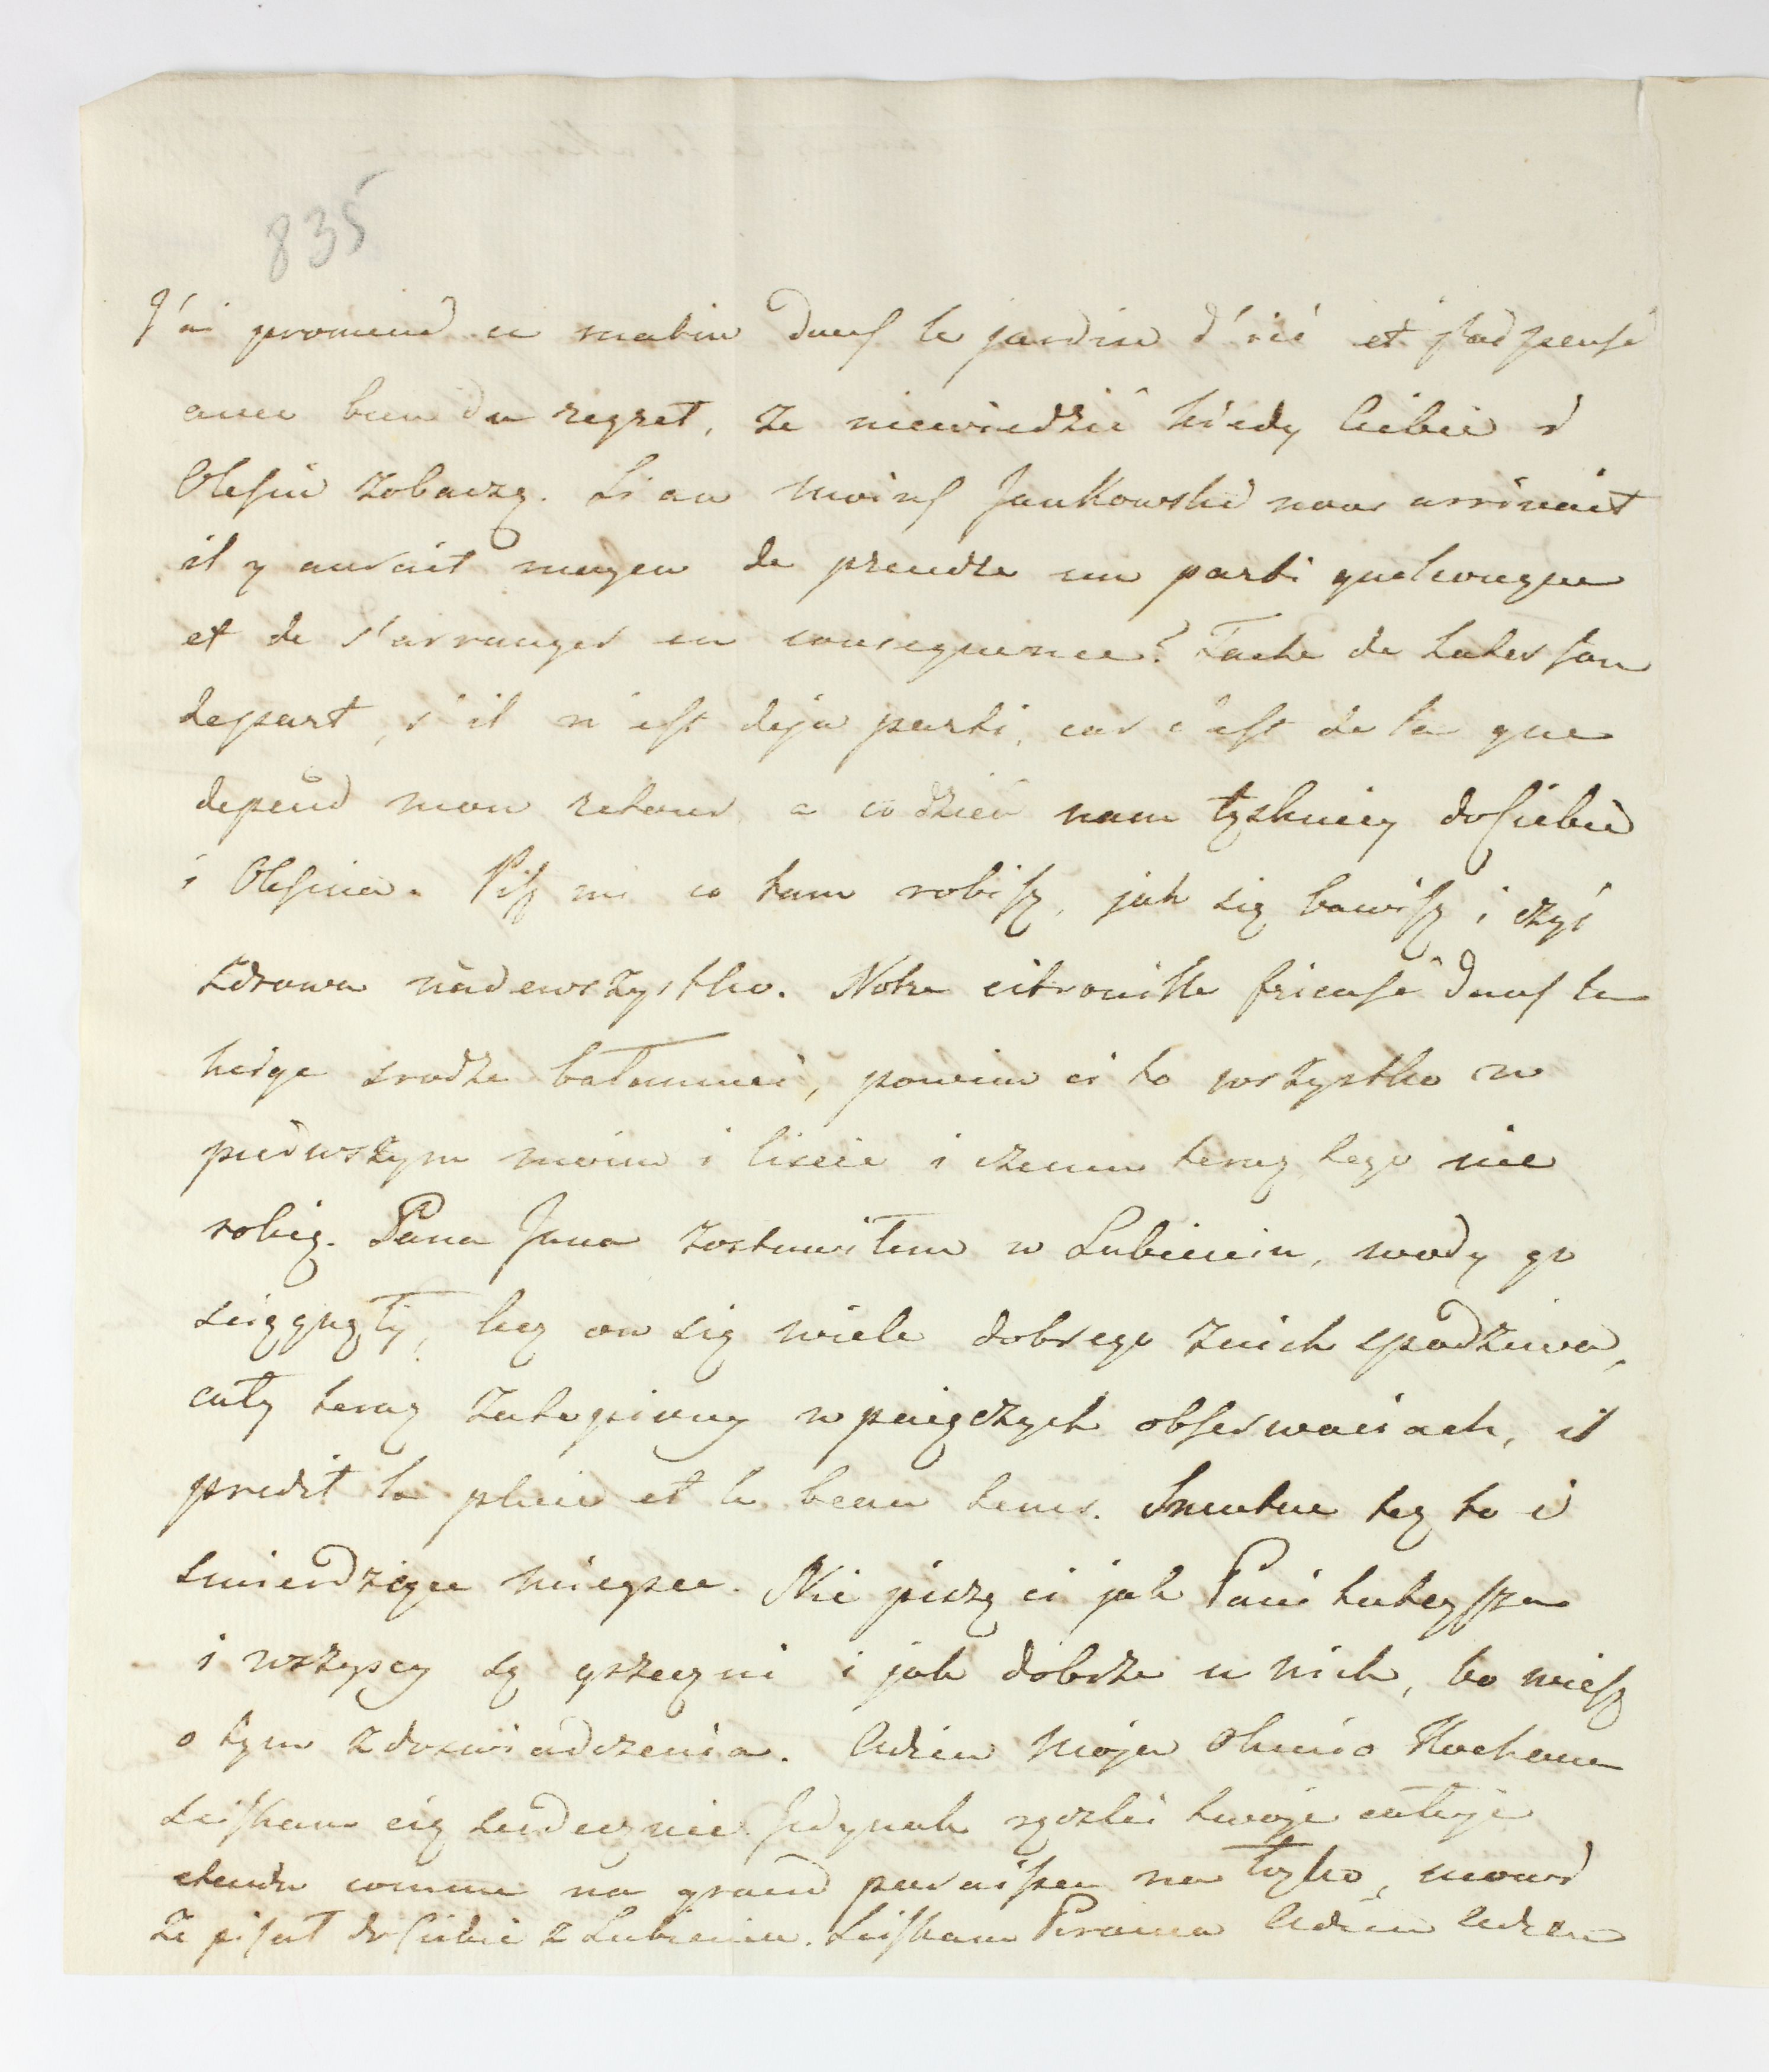 835
J'ai promené ce matin dans le jardin d'ici et j'ai pensé
avec bien du regret, że niewiedzić kiedy Ciebie i
Olesin zobaczę. Si au moins Jankowski nous arrivait
il y aurait moyen de prendre un parti quelconque
et de s'arranger en consequence? Tache de hater son
depart, s'il n'est deja parti, car c'est de la que
depend mon retour a co dzień nam tęskniey do Ciebie
i Olesina. Pisz mi co tam robisz, jak się bawisz i żyi
zdrowa nadewszystko. Notre citrouille fricasé dans la
neige srodze bałamuci, powiem ci to wszystko w
pierwszym moim i liscie i czemu teraz tego nie
robię. Pana Jana zostawiłem w Lubieniu, wody go
sciągnęły, lecz on się wiele dobrego znich spodziewa,
cały teraz zatopiony w obserwaciach, il
predit la pluie et le beau tems. Smutne tez to i
smierdzące mieysce. Nie piszę ci jak Pani tuteysza
i wszyscy są grzeczni i jak dobrze u nich, bo wiesz
o tym z doswiadczenia. Adieu moja Oluniu Kochana
sciskam cię serdecznie Jedynak rączki twoje całuje
etendu comme na łożko, mowi
że pisał do Ciebie z Lubienia. Sciskam Adieu Adieu